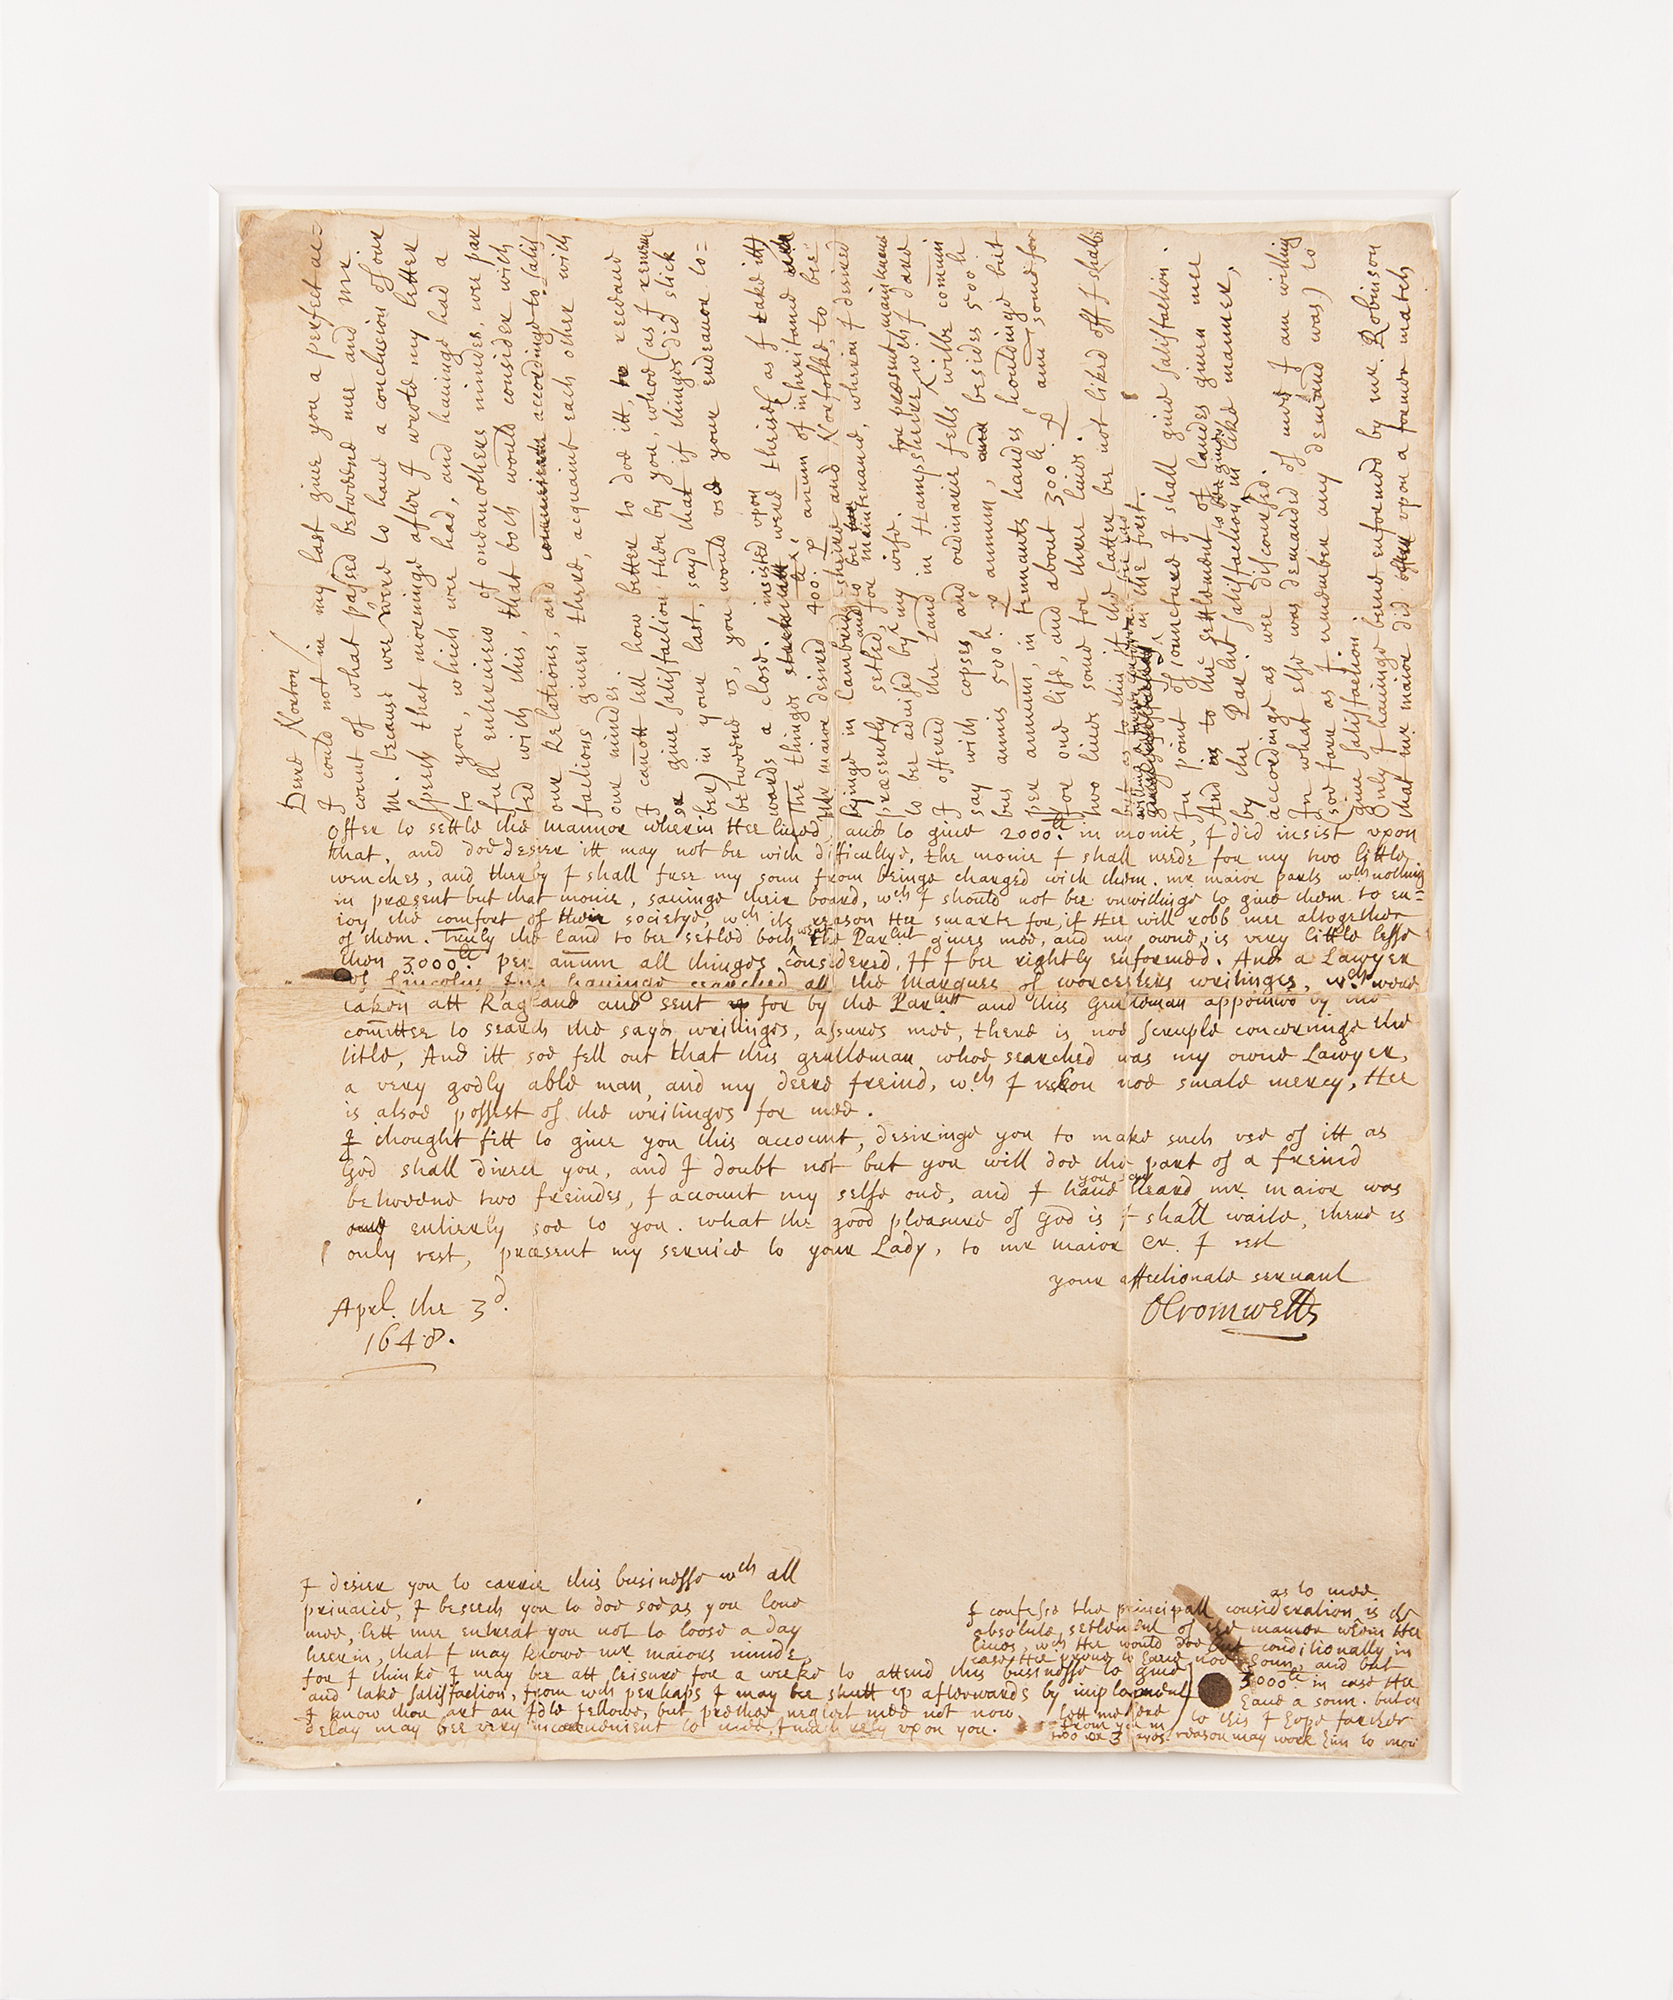 Deere Norton
I could not in my last give you a perfect ac=
count of what passed betweene mee and Mr
M. because wee were to have a conclusion of our
speech that morninge after I wrote my letter
to you, which wee had, and havinge had a
full enteruiew of oneanothers mindes, wee par
ted with this, that both would consider with
our Relations, and accordinge to satis
factions given there, acquaint each other with
our mindes.
I canott tell how better to doe itt, to receaue
or giue satisfaction then by you, whoe (as I remem
ber) in your last, sayd that if thinges did stick
betweene vs, you would vse your endeauor to=
wards a close.
The thinges insisted vpon were theise (as I take itt)
Mr maior desired 400li p annum of inheritance
lyinge in Cambridgshire and Norfolke, to bee
presently setled, and to bee for maintenance, wherin I desired
to bee aduised by my wife.
I offered the land in Hampsheire for present maintenance wch I dare
say with copses and ordinarie fells wilbe commun
bus annis 500li p annum, and besides 500li
per annum, in tennants handes houldinge but
for one life, and about 300li p annum some for
two liues some for three liues.
but as to this if the latter bee not liked off I shalbe
in the first.
In point of ioyncture I shall giue satisfaction.
And as to the settlement of landes giuen mee
by the Parlnt satisfaction to bee giuen in like manner,
accordinge as wee discoursed.
In what else was demanded of mee I am willing
soe farr as I remember any demand was) to
giue satisfaction.
Only I hauinge beene enformed by mr Robinson
that mr maior did vpon a former match
offer to settle the mannor wherin Hee liued, and to giue 2000li in monie, I did insist vpon
that, and doe desier itt may not bee with difficultye, the monie I shall neede for my two little
wenches, and therby I shall free my sonn from beinge charged with them. mr maior parts wth nothing
in præsent but that monie, sauinge their board, wch I should not bee vnwillinge to giue them to en=
ioy the comfort of their societye, wch its reason Hee smarte for, if Hee will robb mee altogether
of them. Truly the land to bee setled both what the Parlnt giues mee, and my owne, is very little lesse
then 3000li per annum all thinges considered, If I bee rightly enformed. And a Lawyer
of Lincolns Inn hauinge searched all the Marques of worcesters writinges, wch were
taken att Ragland and sent for by the Parlnt and this gentleman appointed by the
comittee to search the sayd writinges, assures mee, there is noe scruple concerninge the
title, And itt soe fell out that this gentleman whoe searched was my owne Lawyer,
a very godly able man, and my deere freind, wch I reckon noe smale mercy, Hee
is alsoe possest of the writinges for mee.
I thought fitt to giue you this account, desiringe you to make such vse of itt as
God shall direct you, and I doubt not but you will doe the part of a freind
betweene two freindes, I account my selfe one, and I haue heard you say mr maior was
entierly soe to you. what the good pleasure of God is I shall waite, there is
only rest, præsent my seruice to your Lady, to mr maior &c. I rest
your affectionate seruant
OCromwell
Aprl. the 3d.
1648.
I desier you to carrie this businesse wth all
priuacie, I beseech you to doe soe as you loue
mee, lett mee entreat you not to loose a day
heerin, that I may knowe mr maiors minde,
for I thinke I may bee att leisure for a weeke to attend this businesse to giue
and take satisfaction, from wch perhaps I may bee shutt vp afterwards by imployment
I know thou art an Idle fellowe, but prethee neglect mee not now.
delay may bee very inconuenient to mee, I much rely vpon you.
lett me here
from you in
two or 3 dayes.
I confesse the principall consideration as to mee is the
absolute settlement of the mannor wherin Hee
liues, wch Hee would doe but conditionally in
case Hee proue to haue noe sonn, and but
3000li in case Hee
haue a sonn. but as
to this I hope farther
reason may work him to more